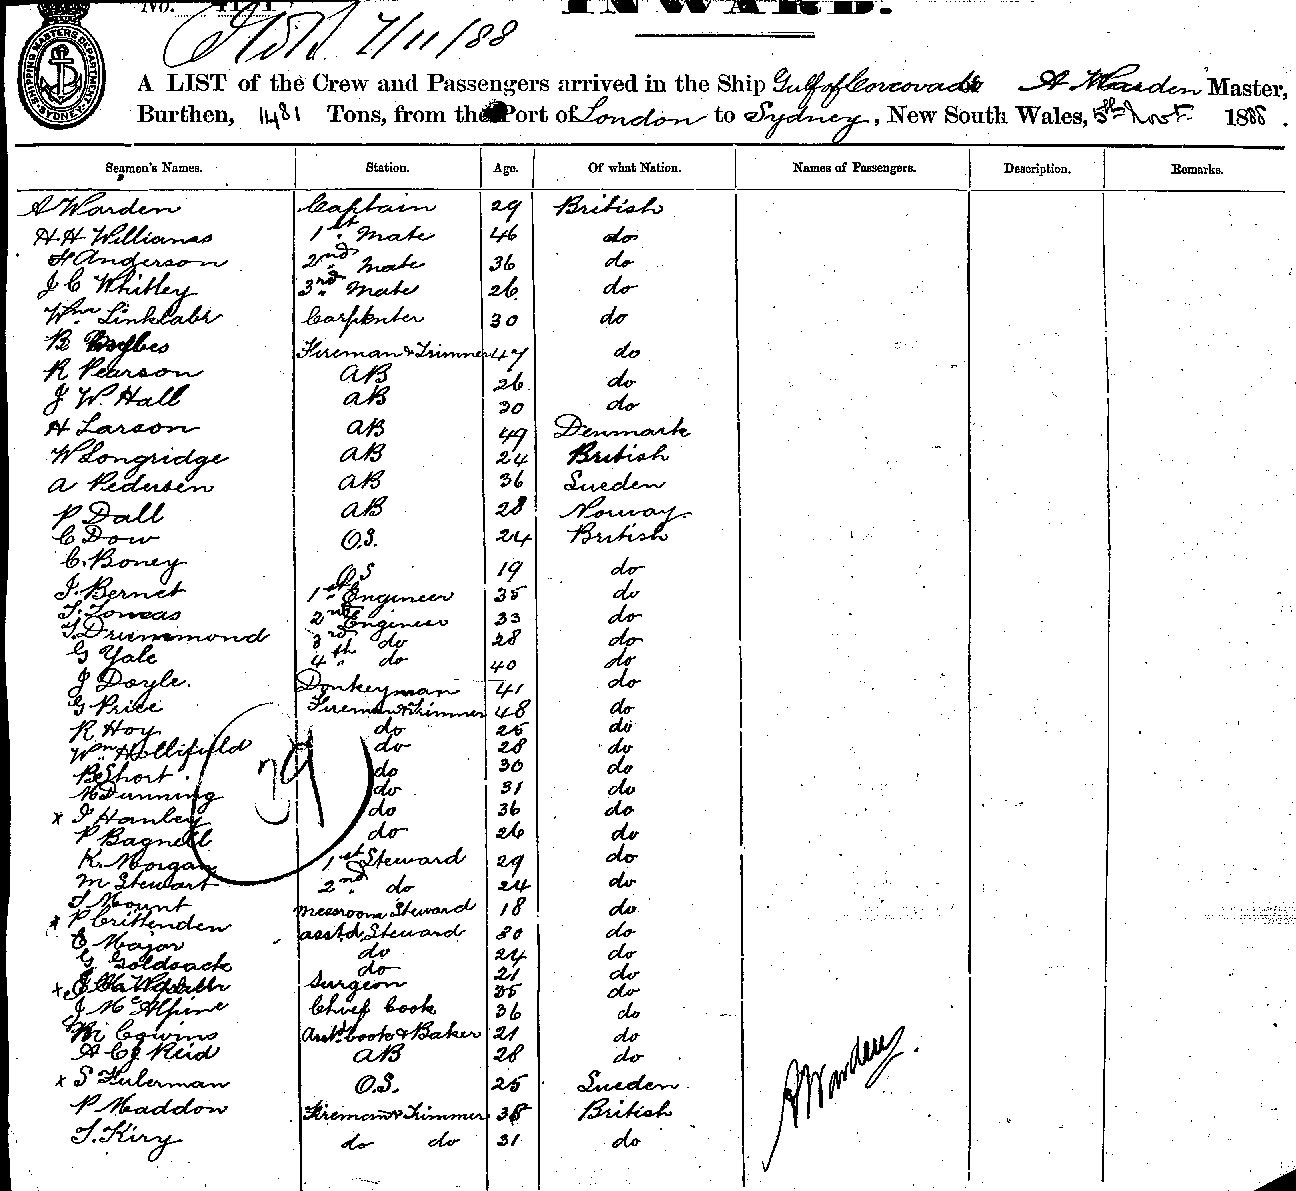 No.
INWARD.
7/11/88
SHIPPING MASTERS DEPARTMENT SYDNEY
A LIST of the Crew and Passengers arrived in the Ship Gulf of Corcovado A Warden Master,
Burthen, 1481 Tons, from the Port of London to Sydney, New South Wales, 5th Novr 1888.
Seamen's Names. Station. Age. Of what Nation. Names of Passengers. Description. Remarks.
A Warden Captain 29 British
H. H Williams 1st Mate 46 do
H Anderson 2nd Mate 36 do
J C Whitley 3rd Mate 26 do
Wm Carpenter 30 do
B Fireman & Trimmer 47 do
R Pearson AB 26 do
J W. Hall AB 30 do
H Larson AB 49 Denmark
W Longridge AB 24 British
A Pedersen AB 36 Sueden
P Dall AB 28 Norway
C Dow O.S. 24 British
C. Boney OS 19 do
J. Bernet 1st Engineer 35 do
2nd Engineer 33 do
Drummond 3rd do 28 do
G Yale 4th do 40 do
J Doyle. Donkeyman 41 do
G Price Fireman & Trimmer 48 do
R Hoy do 25 do
Wm Hollifield do 28 do
B Short. do 30 do
Dunning do 31 do
x J Hanley do 36 do
P Bagnell do 26 do
K. Morgan 1st Steward 29 do
M Stewart 2nd do 24 do
Mount messroom Steward 18 do
x P Crittenden asstd. Steward 30 do
C Major do 24 do
G Goldsack do 21 do
x Surgeon 35 do
J McAlpine Chief Cook 36 do
Asst Cook & Baker 21 do
A Reid AB 28 do
x S Fulerman O.S. 25 Sueden
P Maddon Fireman & Trimmer 38 British
T. Kiry do do 31 do
39
A Warden